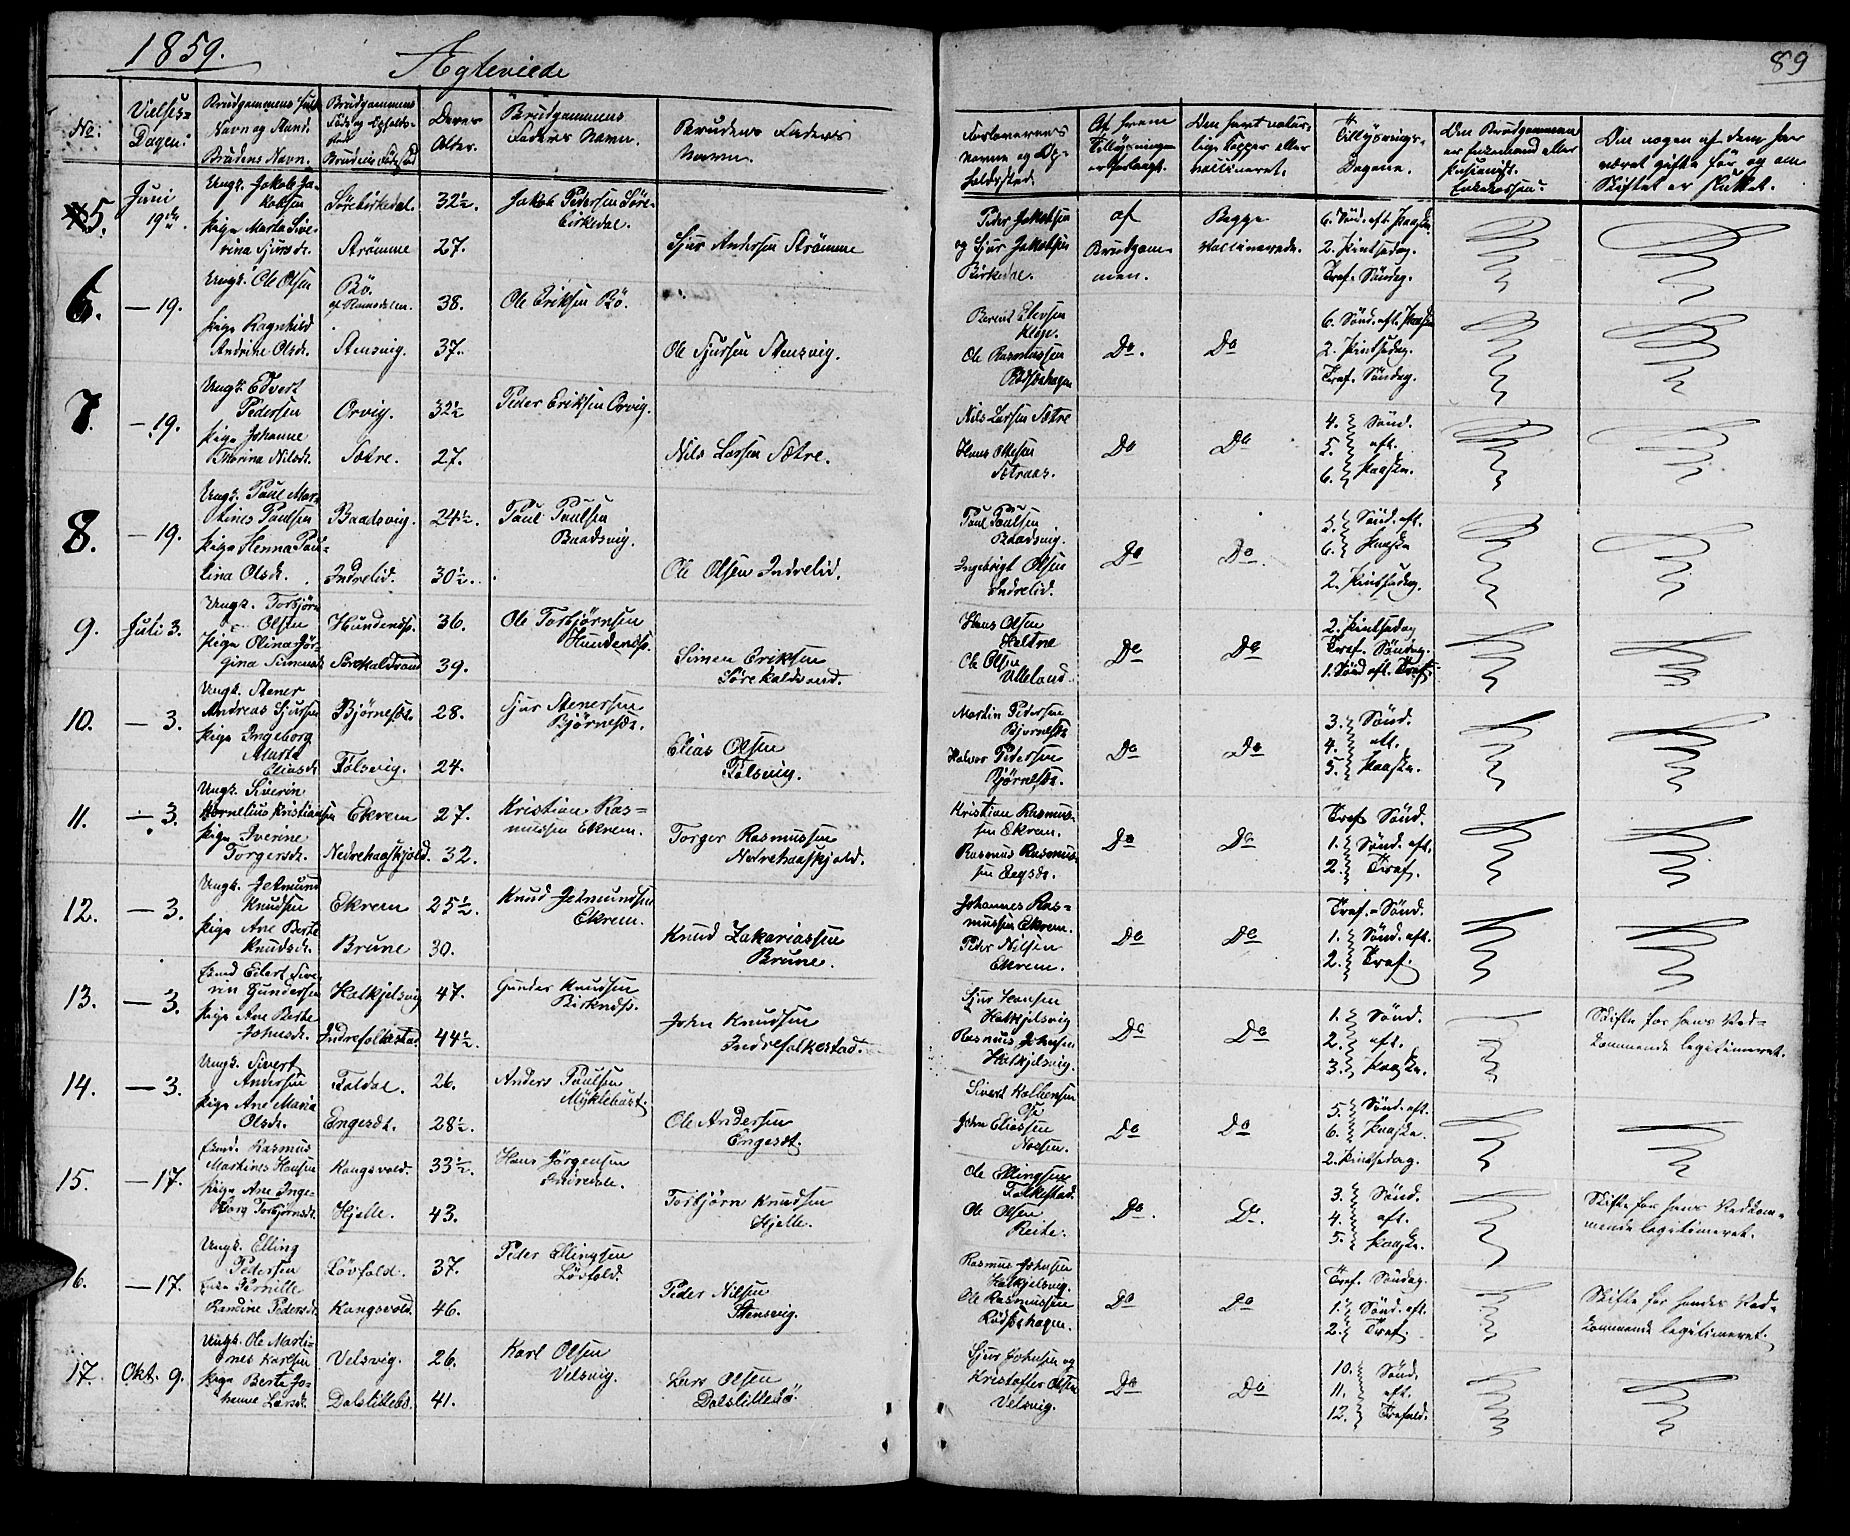 1859.
Ægteviede
89
No:
Vielses-
Dagen:
Brudgommens fulde
Navn og Stand.
Brudens Navn.
Brudgommens
Føde og Opholds-
sted
Brudens Fødested
Deres
Alder.
Brudgommens
Faders Navn.
Brudens Faders
Navn.
Forlovernes
Navne og Op-
holdssted.
Af hvem
Tillysningen
er forlangt.
Om havt natur-
lige Kopper eller
vaccineret.
Tillysnings-
Dagene.
Om Brudgommen
er Enkemand eller
Om nogen af dem har
været gifte før og om
Skiftet er sluttet.
5.
Juni
19de
Ungk. Jakob Ja-
kobsen
Pige Marta Sive-
rina Sjursdr.
Sørebirkedal.
Strømme
32½.
27.
Jakob Pedersen Søre-
birkedal.
Sjur Andersen Strømme
Peder Jakobsen
og Sjur Jakobsen
Birkedal.
af
Brudgom-
men.
Begge
vaccinerede.
6. Sønd. eft. Paaske
2. Pintsedag.
Tref. Søndag.
6.
— 19.
Ungk. Ole Olsen
Pige Ragnhild
Andrine Olsdr.
Bö.
af Romsdalen.
Stensvig.
38.
37.
Ole Eriksen Bö.
Ole Sjursen Stensvig.
Berent Elevsen
Ole Rasmussen
Rødsethagen
Do.
Do
6. Sønd. eft. Paaske
2. Pintsedag.
Tref. Søndag.
7.
— 19.
Ungk. Edvert
Pedersen
Pige Johanne
Thorina Nilsdr.
Orvig.
Sætre.
32½
27.
Peder Eriksen Orvig.
Nils Larsen Sætre.
Nils Larsen Sætre
Hans Ottesen
Aatraas.
Do
Do
4. Sønd.
5. eft.
6. Paaske.
8.
— 19.
Ungk. Paul Mar-
tines Paulsen
Pige Henna Pau-
lina Olsdr.
Baadsvig.
Indrelid.
24½.
30½.
Paul Paulsen
Baadsvig.
Ole Olsen Indrelid.
Paul Paulsen
Baadsvig.
Ingebrigt Olsen
Indrelid.
Do
Do.
5. Sønd. eft.
6. Paaske
2. Pintsedag.
9.
Juli 3.
Ungk. Torbjørn
Olsen
Pige Olina Jør-
gina Simensdr.
Hundeidss.
Sørekaldvand
36.
39.
Ole Torbjørnsen
Hundeidss.
Simen Eriksen
Sørekaldvand.
Hans Olsen
Haltne
Ole Olsen
Ulleland.
Do
Do
2. Pintsedag
Tref. Søndag.
1. Sønd. eft. Tref.
10.
— 3.
Ungk. Stener
Andreas Sjursen
Pige Ingeborg
Marta
Eliasdr.
Bjørnesdt.
Folsvig.
28.
24.
Sjur Stenersen
Bjørnesdt.
Elias Olsen
Folsvig.
Martin Pedersen
Bjørnesdt
Halvor Pedersen
Bjørnesdt.
Do
Do
3. Sønd.
4. eft.
5. Paaske.
11.
— 3.
Ungk. Siverin
Kornelius Kristiansen
Pige Iverine
Torgersdr.
Ekrem
Nedrehaaskjold.
27.
32.
Kristian Ras-
mussen Ekrem.
Torger Rasmussen
Nedrehaaskjold.
Kristian Rasmus-
sen Ekrem.
Rasmus Rasmus-
sen Eegsdt.
Do
Do
Tref. Sønd.
1. Sønd. eft.
2. Tref.
12.
— 3.
Ungk. Jetmund
Knudsen
Pige Ane Berte
Knudsdr.
Ekrem
Brune
25½.
30.
Knud Jetmundsen
Ekrem.
Knud Zakariassen
Brune.
Johannes Ras-
mussen Ekrem.
Peder Nilsen
Ekrem.
Do
Do
Tref. Sønd.
1. Sønd. eft.
2. Tref.
13.
— 3.
Emd Edert Sive-
rin Gundersen
Pige Ane Berte
Johnsdr.
Halkjelsvig
Indrefolkestad
47.
44½.
Gunder Knudsen
Birknæss.
John Knudsen
Indrefolkestad.
Sjur Hansen
Halkjelsvig
Rasmus Johnsen
Halkjelsvig.
Do
Do
1. Sønd.
2. eft.
3. Paaske.
Skifte for hans Ved-
kommende legitimeret.
14.
— 3.
Ungk. Sivert
Andersen
Pige Ane Maria
Olsdr.
Foldal.
Engesdt.
26.
28½.
Anders Paulsen
Myklebust
Ole Andersen
Engesdt.
Sivert Kolbensen
Ose
John Eliassen
Nossen.
Do
Do
5. Sønd. eft.
6. Paaske.
2. Pintsedag.
15.
— 17.
Emd. Rasmus
Martines Hansen
Pige Ane Inge-
borg Torbjørnsdr.
Kongsvold.
Hjelle.
33½.
43.
Hans Jørgensen
Torbjørn Knudsen
Hjelle.
Ole Ellingsen
Folkestad.
Ole Olsen
Reite.
Do.
Do.
3. Sønd.
4. eft.
5. Paaske.
Skifte for hans Vedkom-
mende legitimeret.
16.
— 17.
Ungk. Elling
Pedersen
Enke Pernille
Randine Pedersdr.
Lövfold.
Kongsvold.
37.
46.
Peder Ellingsen
Lövfold.
Peder Nilsen
Stensvig.
Rasmus Johnsen
Halkjelsvig.
Ole Rasmussen
Rødsethagen.
Do
Do
Tref. Søndag.
1. Sønd. eft.
2. Tref.
Skifte for hendes Ved-
kommende legitimeret.
17.
Okt. 9.
Ungk. Ole Marti-
nes Karlsen
Pige Berte Jo-
hanne Larsdr.
Velsvig.
Dalslittebö.
26.
41.
Karl Olsen
Velsvig.
Lars Olsen
Dalslittebö
Sjur Johnsen og
Kristoffer Olsen
Velsvig.
Do
Do
10. Sønd.
11. eft.
12. Trefold.